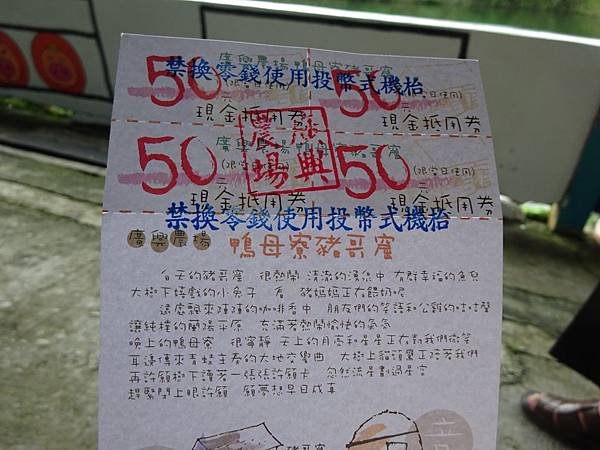 廣興農場鴨母寮豬哥窟
禁換零錢使用投幣式機枱
50 (限當日使用) 50 (限當日使用)
現金抵用券 現金抵用券
廣興農場鴨母寮豬哥窟
50 (限當日使用) 50 (限當日使用)
現金抵用券 現金抵用券
廣興農場
禁換零錢使用投幣式機枱
廣興農場 鴨母寮豬哥窟
白天的豬哥窟 很熱鬧 清澈的湧泉中 有群幸福的魚兒
大樹下嬉戲的小兔子 看 豬媽媽正在餵奶呢
遠處飄來陣陣的咖啡香中 朋友們的笑語和公雞的咕咕聲
讓純樸的蘭陽平原 充滿著熱鬧愉快的氣氛
晚上的鴨母寮 很寧靜 天上的月亮和星星正在對我們微笑
耳邊傳來青蛙主奏的大地交響曲 大樹上貓頭鷹正陪著我們
再許願樹下讀著一張張許願卡 忽然流星劃過星空
趕緊閉上眼許願 願夢想早日成真